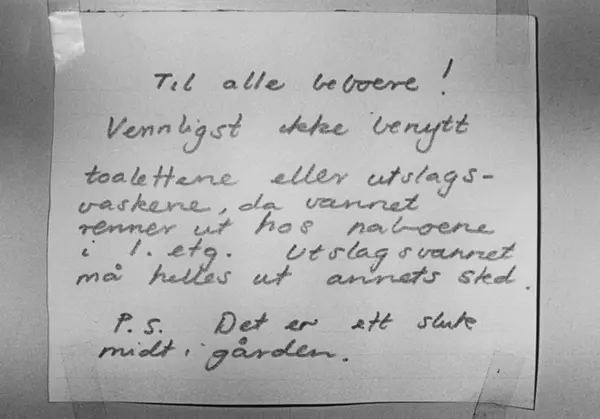 Til alle beboere!
Vennligst ikke benytt
toalettene eller utslags-
vaskene, da vannet
renner ut hos naboene
i 1. etg. Utslagsvannet
må helles ut annets sted.
P.S. Det er ett sluk
midt i gården.